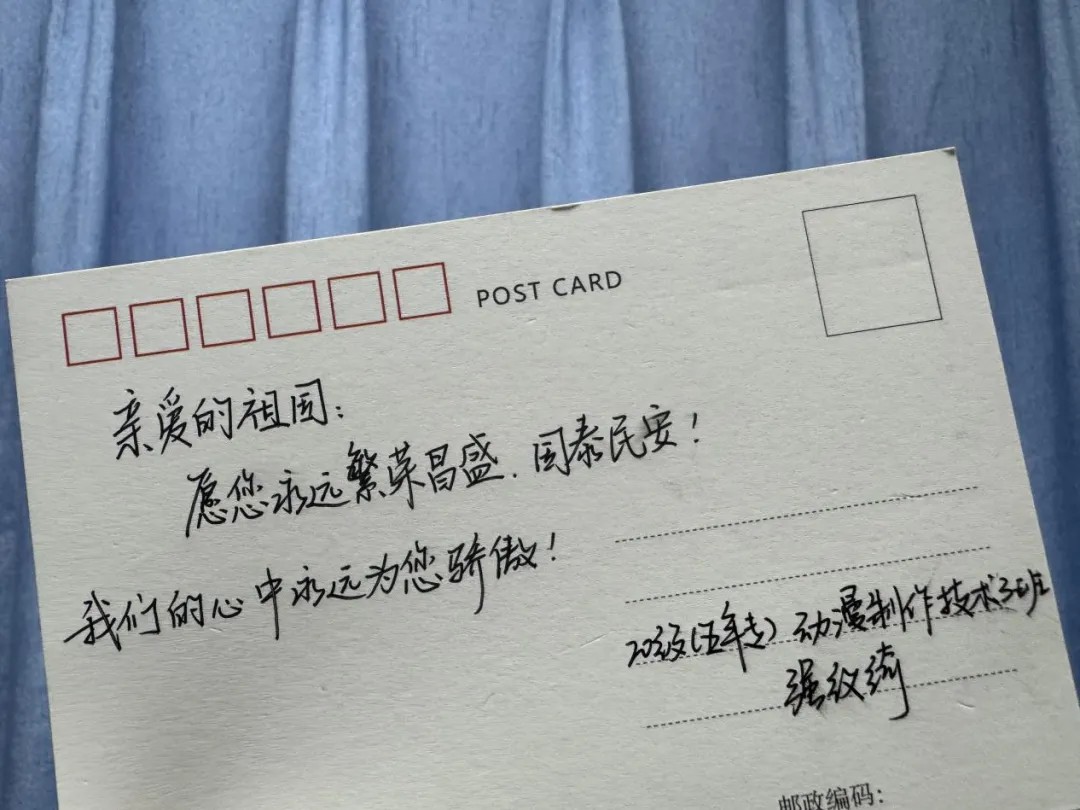 POST CARD
亲爱的祖国：
愿您永远繁荣昌盛，国泰民安！
我们的心中永远为您骄傲！
20级（五年专）动漫制作技术3班
强纹绮
邮政编码：